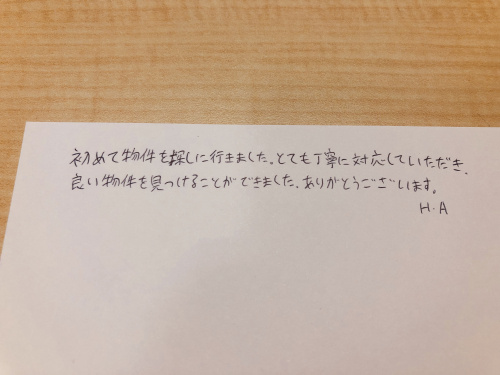 初めて物件を探しに行きました。とても丁寧に対応していただき、
良い物件を見つけることができました。ありがとうございます。
H.A